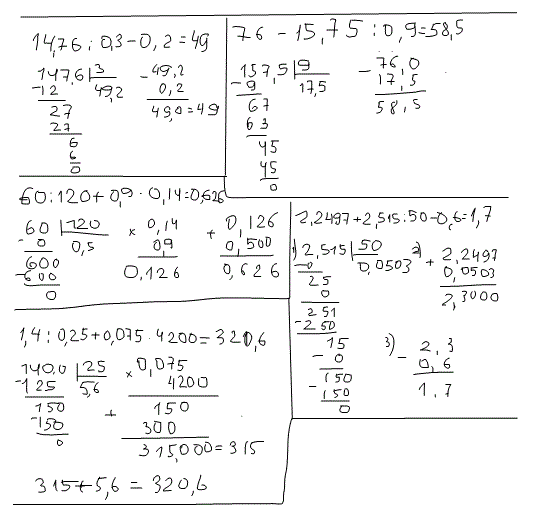 14,76 : 0,3 - 0,2 = 49
147,6 | 3
-12 49,2
27
27
6
6
0
-49,2
0,2
49,0 = 49
76 - 15,75 : 0,9 = 58,5
157,5 | 9
-9 17,5
67
63
45
45
0
-76,0
17,5
58,5
60 : 120 + 0,9 · 0,14 = 0,626
60 | 120
-0 0,5
600
-600
0
× 0,14
09
0,126
+ 0,126
0,500
0,626
2,2497 + 2,515 : 50 - 0,6 = 1,7
1) 2,515 | 50
-0 0,0503
25
0
251
-250
15
-0
150
-150
0
2) + 2,2497
0,0503
2,3000
3) - 2,3
0,6
1,7
1,4 : 0,25 + 0,075 · 4200 = 320,6
140,0 | 25
-125 5,6
150
-150
0
× 0,075
4200
+ 150
300
315,000 = 315
315 + 5,6 = 320,6